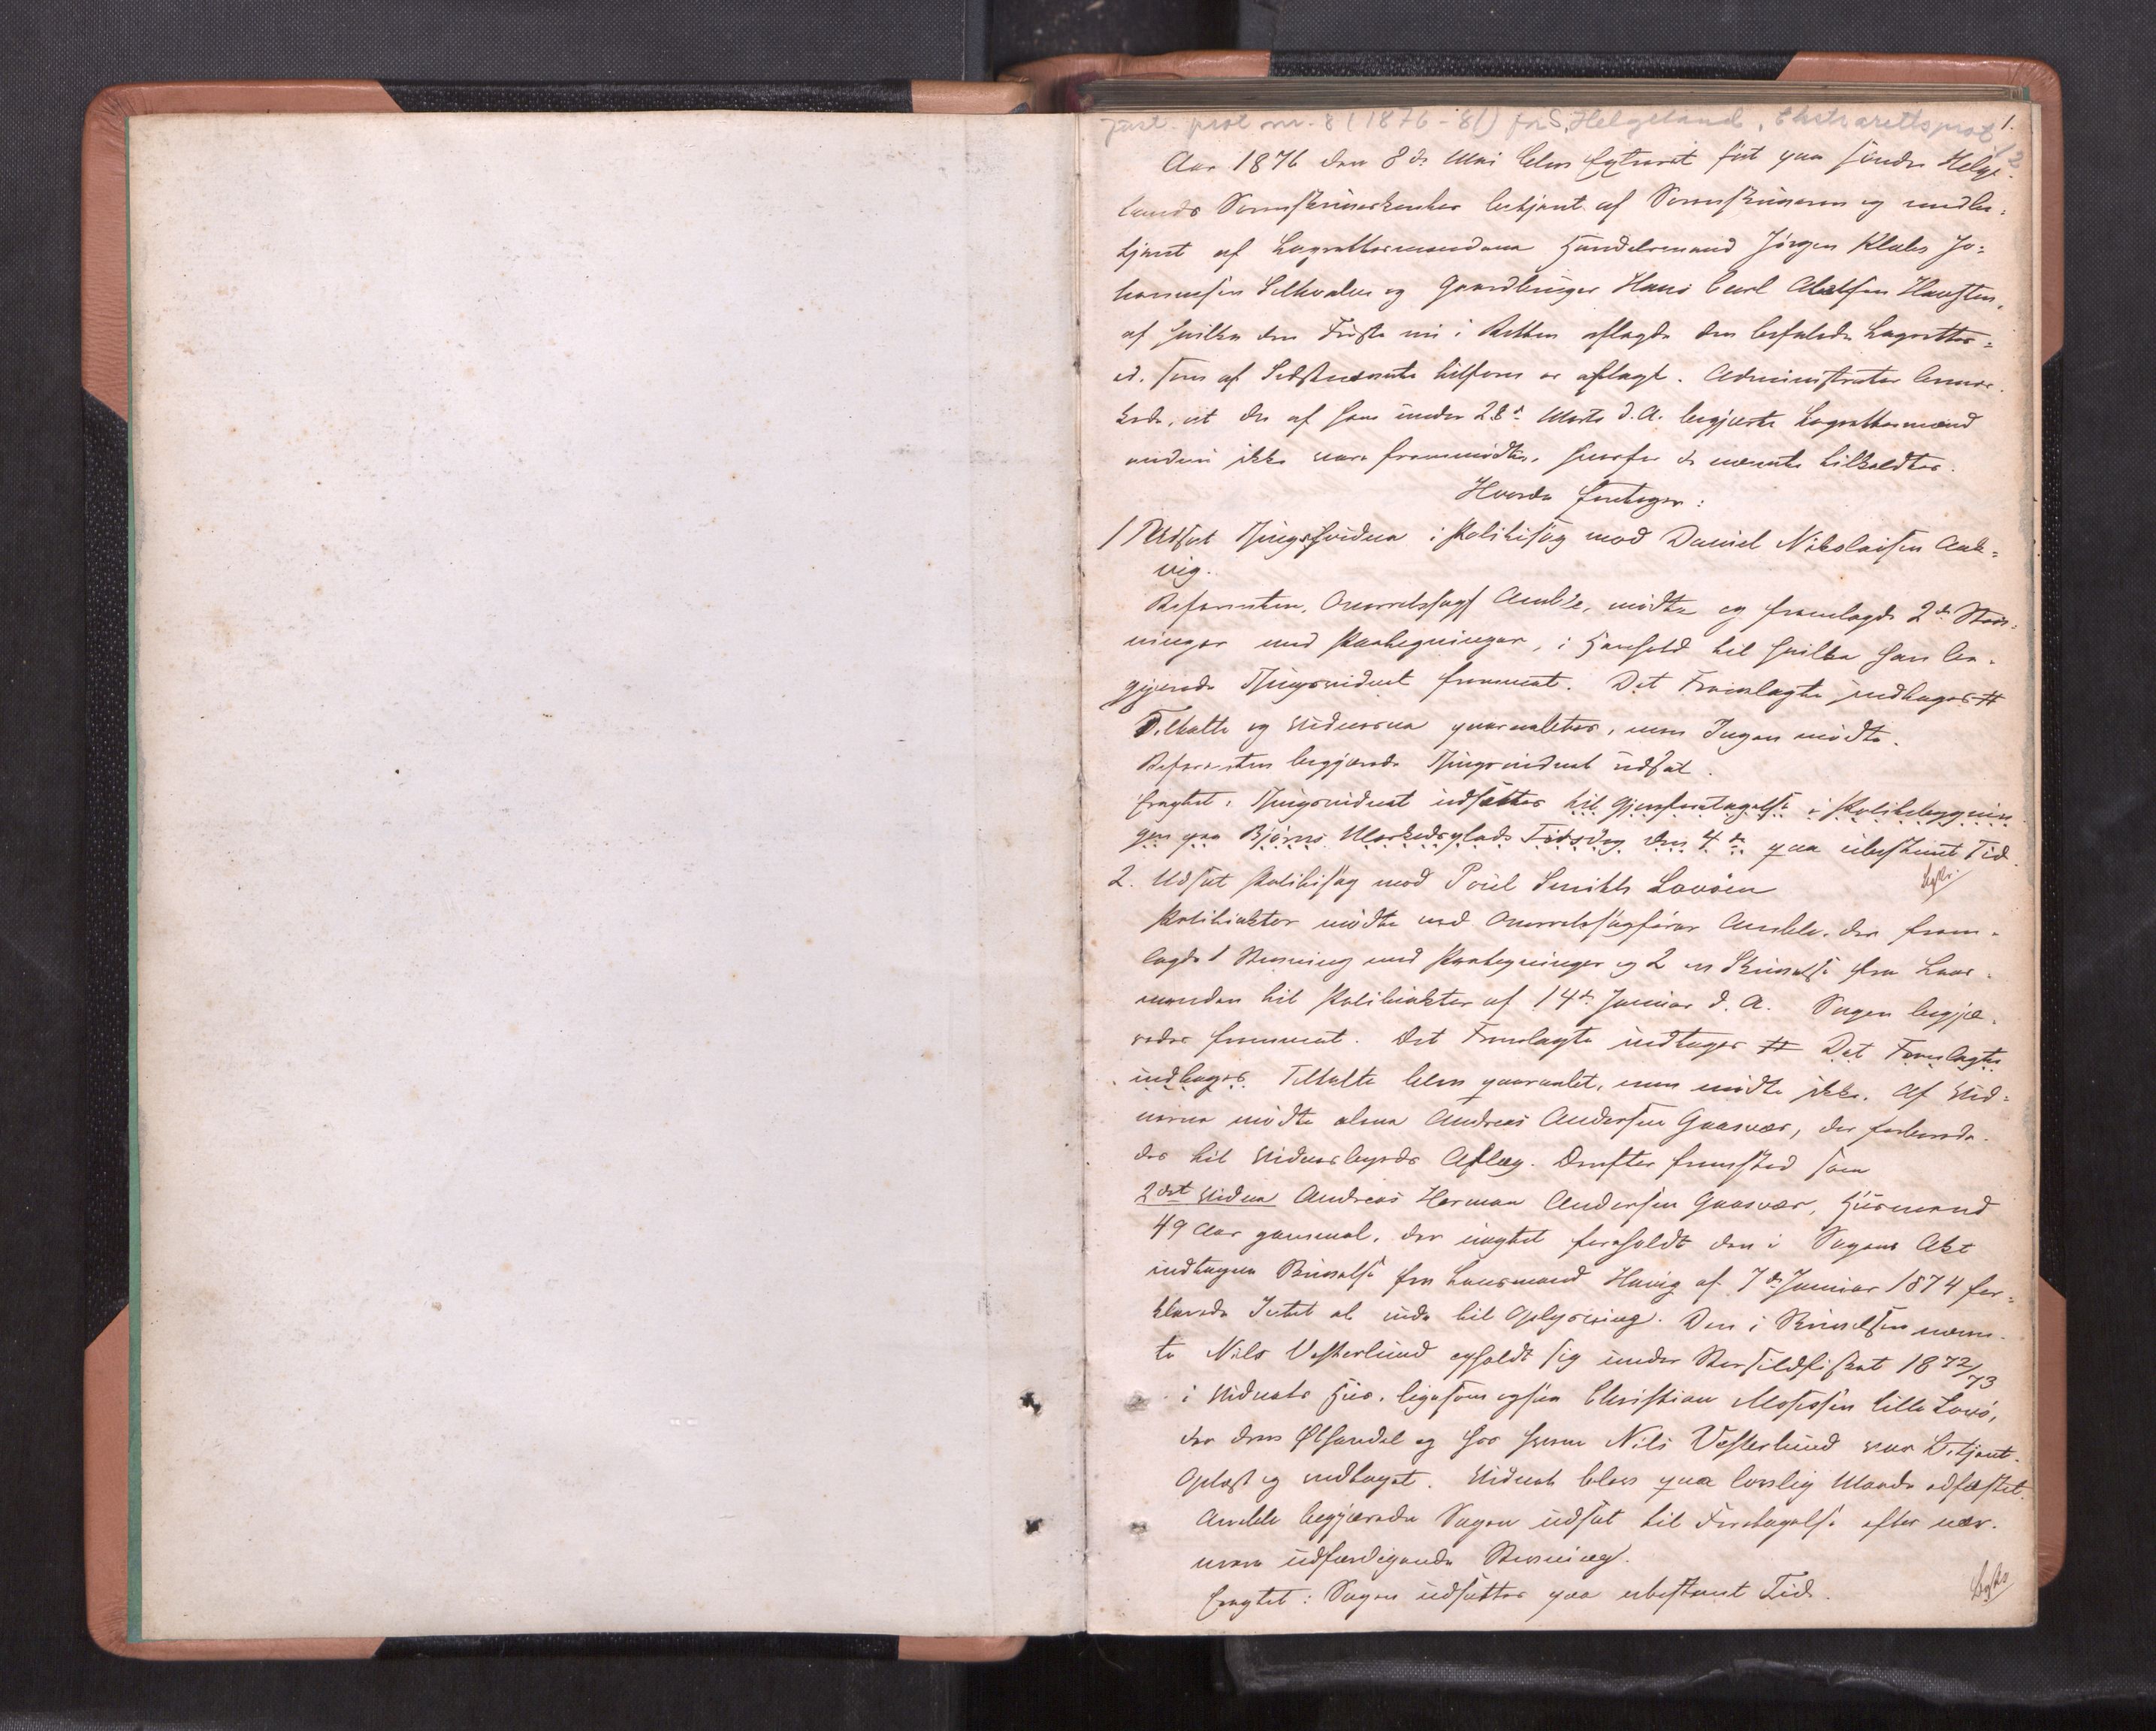 Just. prot. nr. 8 (1876-81) for S. Helgeland, Ekstrarettsprot.
1.
Aar 1876 den 8de Mai blev Extraret sat paa søndre Helge-
lands Sorenskriverkontor betjent af Sorenskriveren og medbe-
tjent af Lagrettesmændene Handelsmand Jørgen Klubs Jo-
hannesen Selhvalen og Gaardbruger Hans Carl Adolfsen Hausten,
af hvilke den Første nu i Retten aflagde den befalede Lagrettes-
ed, som af Sidstnævnte tilforn er aflagt. Administrator bemær-
kede, at de af ham under 28de Marts d. A. begjærte Lagrettesmænd
endnu ikke vare fremmødte, hvorfor de nævnte tilkaldtes.
Hvorda foretoges:
1 Udsat Thingsvidne i Politisag mod Daniel Nikolaisen Aak-
vig.
Referenten, Overretssagf. møtte og fremlagde 2de Stæv-
ninger med Paategninger, i Henhold til hvilke han be-
gjærede Thingsvidnet fremmet. Det Fremlagte indtages #
Tiltalte og Vidnerne paaraabtes, men Ingen mødte.
Referenten begjærede Thingsvidnet udsat.
Eragtet: Thingsvidnet udsættes til Gjenforetagelse i Politibygnin-
gen paa Bjørns Markedsplads Tirsdag den 4de paa ubestemt Tid.
2. Udsat Politisag mod Poul Smith Lovøen
Politiaktor mødte ved Overretssagfører der frem-
lagde 1 Stævning med Paategninger og 2 en Skrivelse fra Lens-
manden til Politiaktor af 14de Januar d. A. Sagen begjæ-
redes fremmet. Det Fremlagte indtages # Det Fremlagte
indtages. Tiltalte blev paaraabt, men mødte ikke. Af Vid-
nerne mødte alene Andreas Andersen Gaasvær, der forberede-
des til Vidnesbyrds Aflæg. Derefter fremstod som
2det Vidne Andreas Herman Andersen Gaasvær, Husmand
49 Aar gammel, der uagtet foreholdt den i Sagens Akt
indtagne Skrivelse fra Lensmand Havig af 7de Januar 1874 for-
klarede Intet at vide til Oplysning. Den i Skrivelsen nævn-
te Nils Vesterlund opholdt sig under Storsildfisket 1872/73
i Vidnets Hus, ligesom ogsaa Christian Mosessen Lille Lovø,
der drev Ølhandel og hos hvem Nils Vesterlund var betjent.
Oplæst og vedtaget. Vidnet blev paa lovlig Maade edfæstet.
begjærede Sagen udsat til Foretagelse efter nær-
mere udfærdigende Stævning.
Eragtet: Sagen udsættes paa ubestemt Tid.